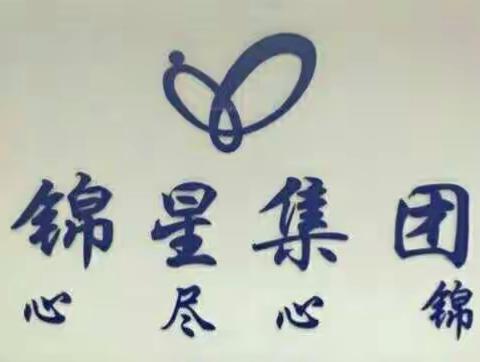 锦星集团
心尽心锦